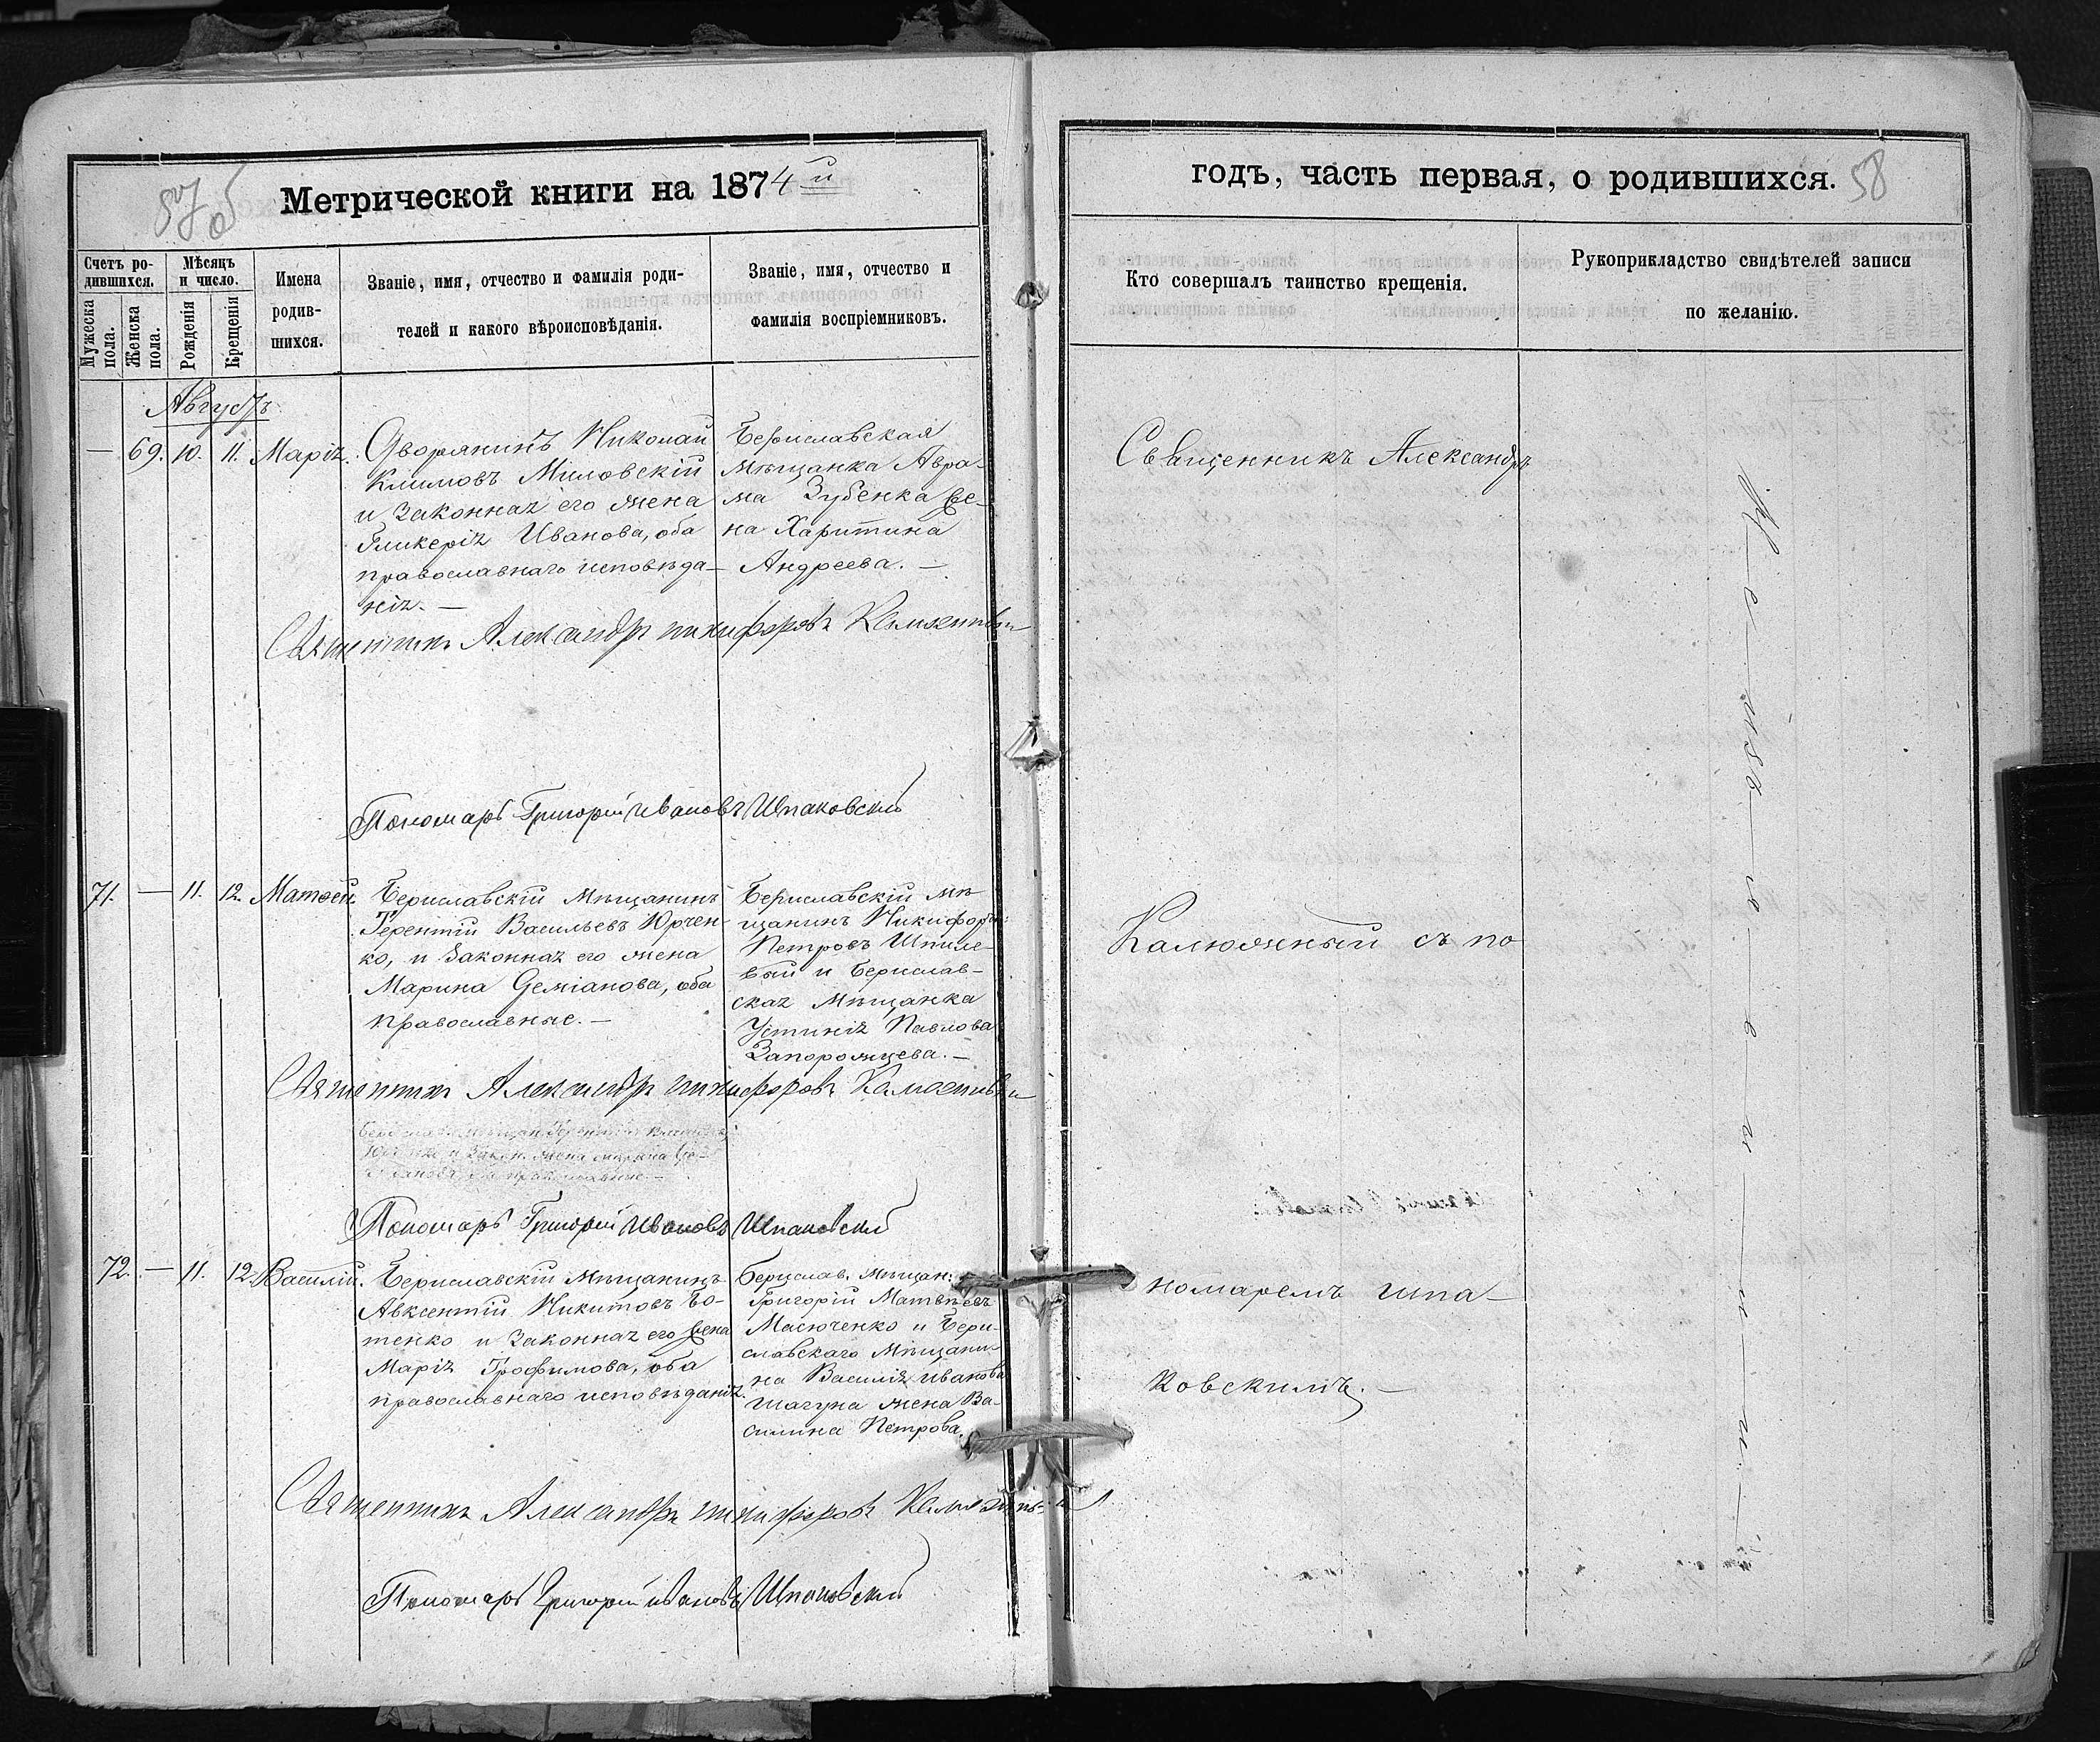 57об
Метрической книги на 1874й
Счетъ ро-
дившихся.
Мужеска
пола.
Женска
пола.
Мѣсяцъ
и число.
Рожденія
Крещенія
Имена
родив-
шихся.
Званіе, имя, отчество и фамилія роди-
телей и какого вѣроисповѣданія.
Званіе, имя, отчество и
фамилія воспріемниковъ.
Августъ
— 69. 10. 11. Марія.
Дворянинъ Николай
Климовъ Миловскій
и законная его жена
Гликерія Иванова, оба
православнаго исповѣда-
нія. —
Бериславская
мѣщанка Авра-
ма Зубенка же-
на Харитина
Андреева. —
Священникъ Александръ Никифоровъ Калюжный
Пономарь Григорій Ивановъ Шпаковскій
71. — 11. 12. Матѳей.
Бериславскій мѣщанинъ
Терентій Васильевъ Юрчен-
ко, и законная его жена
Марина Деміанова, оба
православные. —
Бериславскій мѣ-
щанинъ Никифоръ
Петровъ Шпиле-
вый и Берислав-
ская мѣщанка
Устинія Павлова
Запорожцева. —
Священникъ Александръ Никифоровъ Калюжный
Пономарь Григорій Ивановъ Шпаковскій
72. — 11. 12. Василій.
Бериславскій мѣщанинъ
Авксентій Никитовъ Бо-
тенко и законная его жена
Марія Трофимова, оба
православнаго исповѣданія.
Берислав. мѣщан:
Григорій Матвѣевъ
Масюченко и Бери-
славскаго мѣщани-
на Василія Иванова
Шагуна жена Ва-
силина Петрова.
Священникъ Александръ Никифоровъ Калюжный
Пономарь Григорій Ивановъ Шпаковскій
годъ, часть первая, о родившихся. 58
Кто совершалъ таинство крещенія.
Рукоприкладство свидѣтелей записи
по желанію.
Священникъ Александръ
Калюжный съ по
номаремъ Шпа-
ковскимъ. —